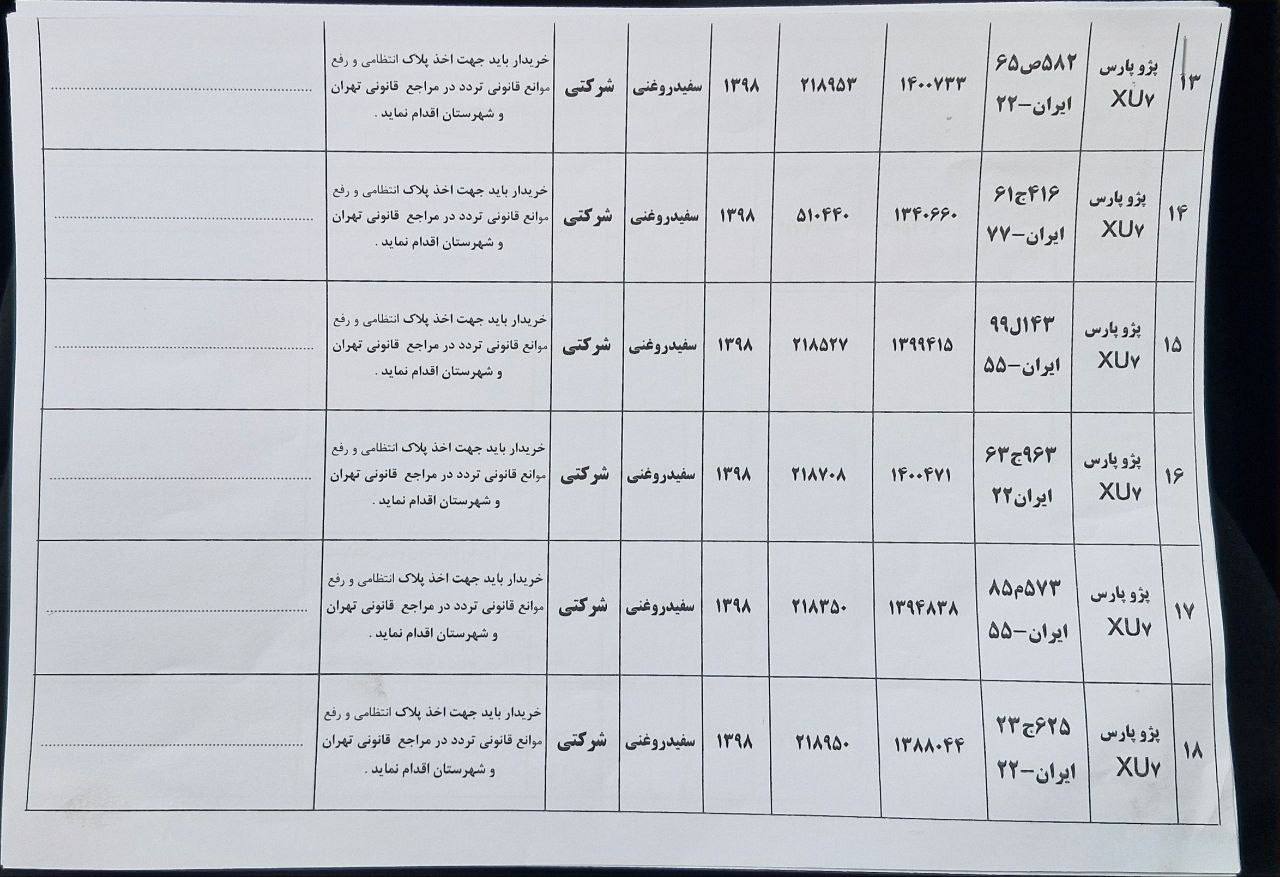 ۱۳
پژو پارس
XU۷
۵۸۲ص۶۵
ایران-۲۲
۱۴۰۰۷۳۳
۲۱۸۹۵۳
۱۳۹۸
سفیدروغنی
شرکتی
خریدار باید جهت اخذ پلاک انتظامی و رفع
موانع قانونی تردد در مراجع قانونی تهران
و شهرستان اقدام نماید .
................................................
۱۴
پژو پارس
XU۷
۴۱۶ج۶۱
ایران-۷۷
۱۳۴۰۶۶۰
۵۱۰۴۴۰
۱۳۹۸
سفیدروغنی
شرکتی
خریدار باید جهت اخذ پلاک انتظامی و رفع
موانع قانونی تردد در مراجع قانونی تهران
و شهرستان اقدام نماید .
................................................
۱۵
پژو پارس
XU۷
۱۴۳ل۹۹
ایران-۵۵
۱۳۹۹۴۱۵
۲۱۸۵۲۷
۱۳۹۸
سفیدروغنی
شرکتی
خریدار باید جهت اخذ پلاک انتظامی و رفع
موانع قانونی تردد در مراجع قانونی تهران
و شهرستان اقدام نماید .
................................................
۱۶
پژو پارس
XU۷
۹۶۳ج۶۳
ایران۲۲
۱۴۰۰۴۷۱
۲۱۸۷۰۸
۱۳۹۸
سفیدروغنی
شرکتی
خریدار باید جهت اخذ پلاک انتظامی و رفع
موانع قانونی تردد در مراجع قانونی تهران
و شهرستان اقدام نماید .
................................................
۱۷
پژو پارس
XU۷
۵۷۳م۸۵
ایران-۵۵
۱۳۹۴۸۳۸
۲۱۸۳۵۰
۱۳۹۸
سفیدروغنی
شرکتی
خریدار باید جهت اخذ پلاک انتظامی و رفع
موانع قانونی تردد در مراجع قانونی تهران
و شهرستان اقدام نماید .
................................................
۱۸
پژو پارس
XU۷
۶۲۵ج۲۳
ایران-۲۲
۱۳۸۸۰۴۴
۲۱۸۹۵۰
۱۳۹۸
سفیدروغنی
شرکتی
خریدار باید جهت اخذ پلاک انتظامی و رفع
موانع قانونی تردد در مراجع قانونی تهران
و شهرستان اقدام نماید .
................................................